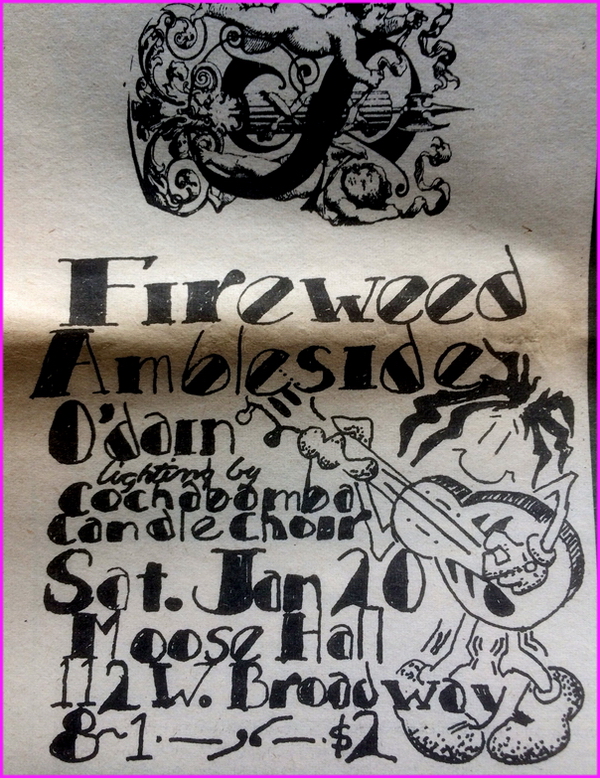 Fireweed
Ambleside
O'dain
lighting by
Cochabamba
Candle Choir
Sat. Jan 20
Moose Hall
112 W. Broadway
8~1 $2